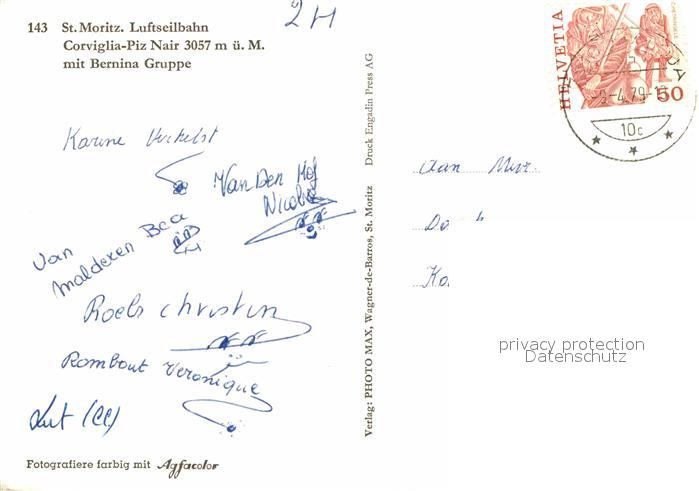 143 St. Moritz. Luftseilbahn
Corviglia-Piz Nair 3057 m ü. M.
mit Bernina Gruppe
2 H
Karine Verhelst
Van Den Hof
Nicole
Van
Malderen Bea
Roels Christin
Rombout Veronique
Lut (CC)
Fotografiere farbig mit Agfacolor
Verlag: PHOTO MAX, Wagner-de-Barros, St. Moritz Druck Engadin Press AG
HELVETIA
50
10c
Aan
privacy protection
Datenschutz